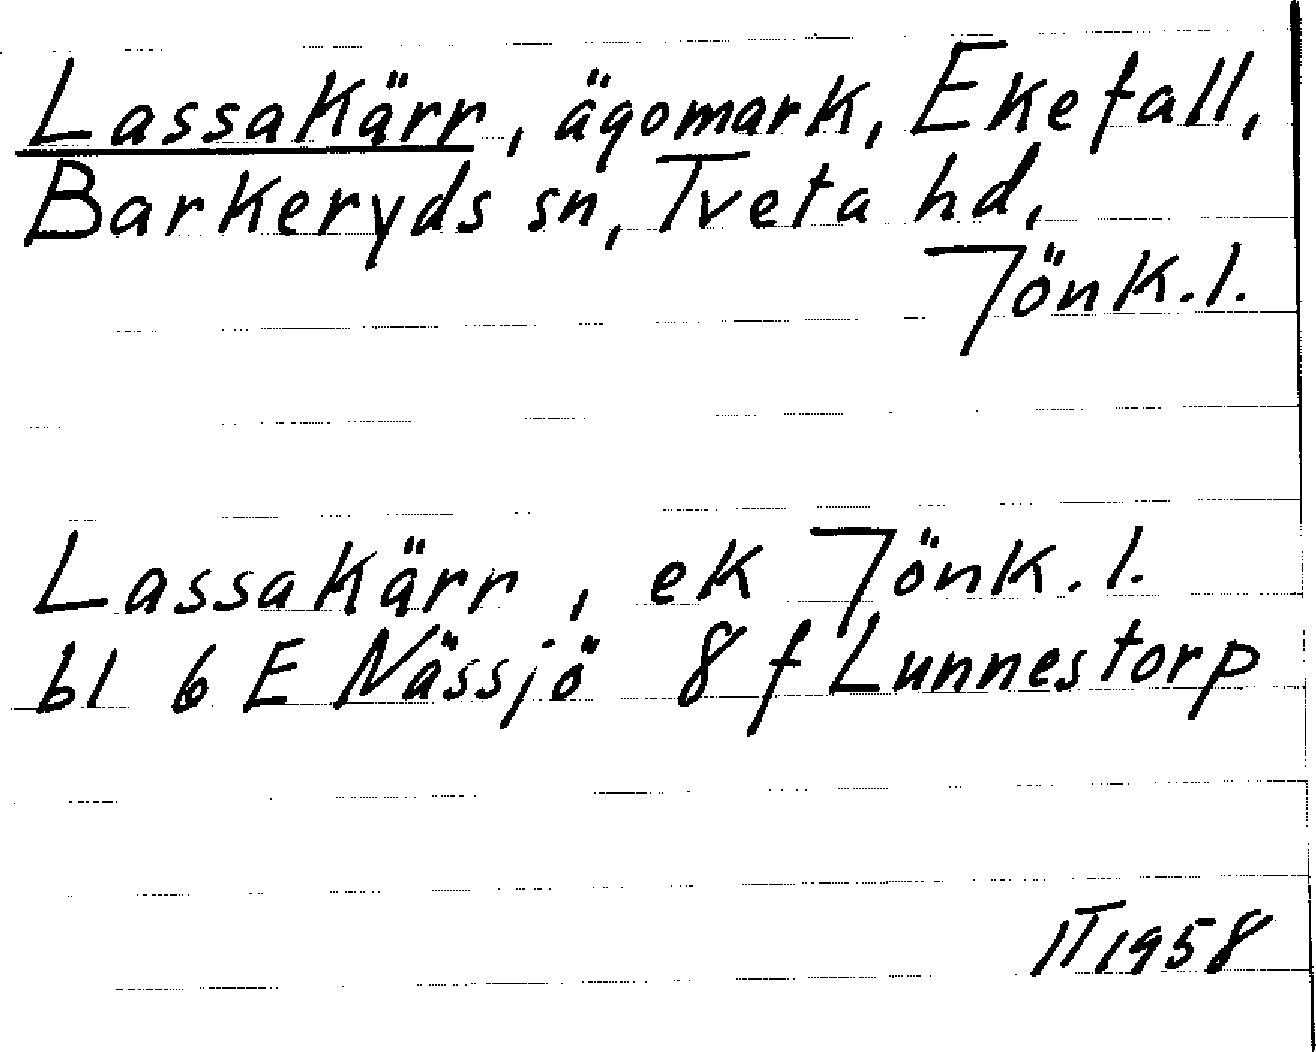 Lassakärr, ägomark, Ekefall,
Barkeryds sn, Tveta hd,
Jönk.l.
Lassakärr, ek Jönk.l.
bl 6 E Nässjö 8 f Lunnestorp
IT 1958